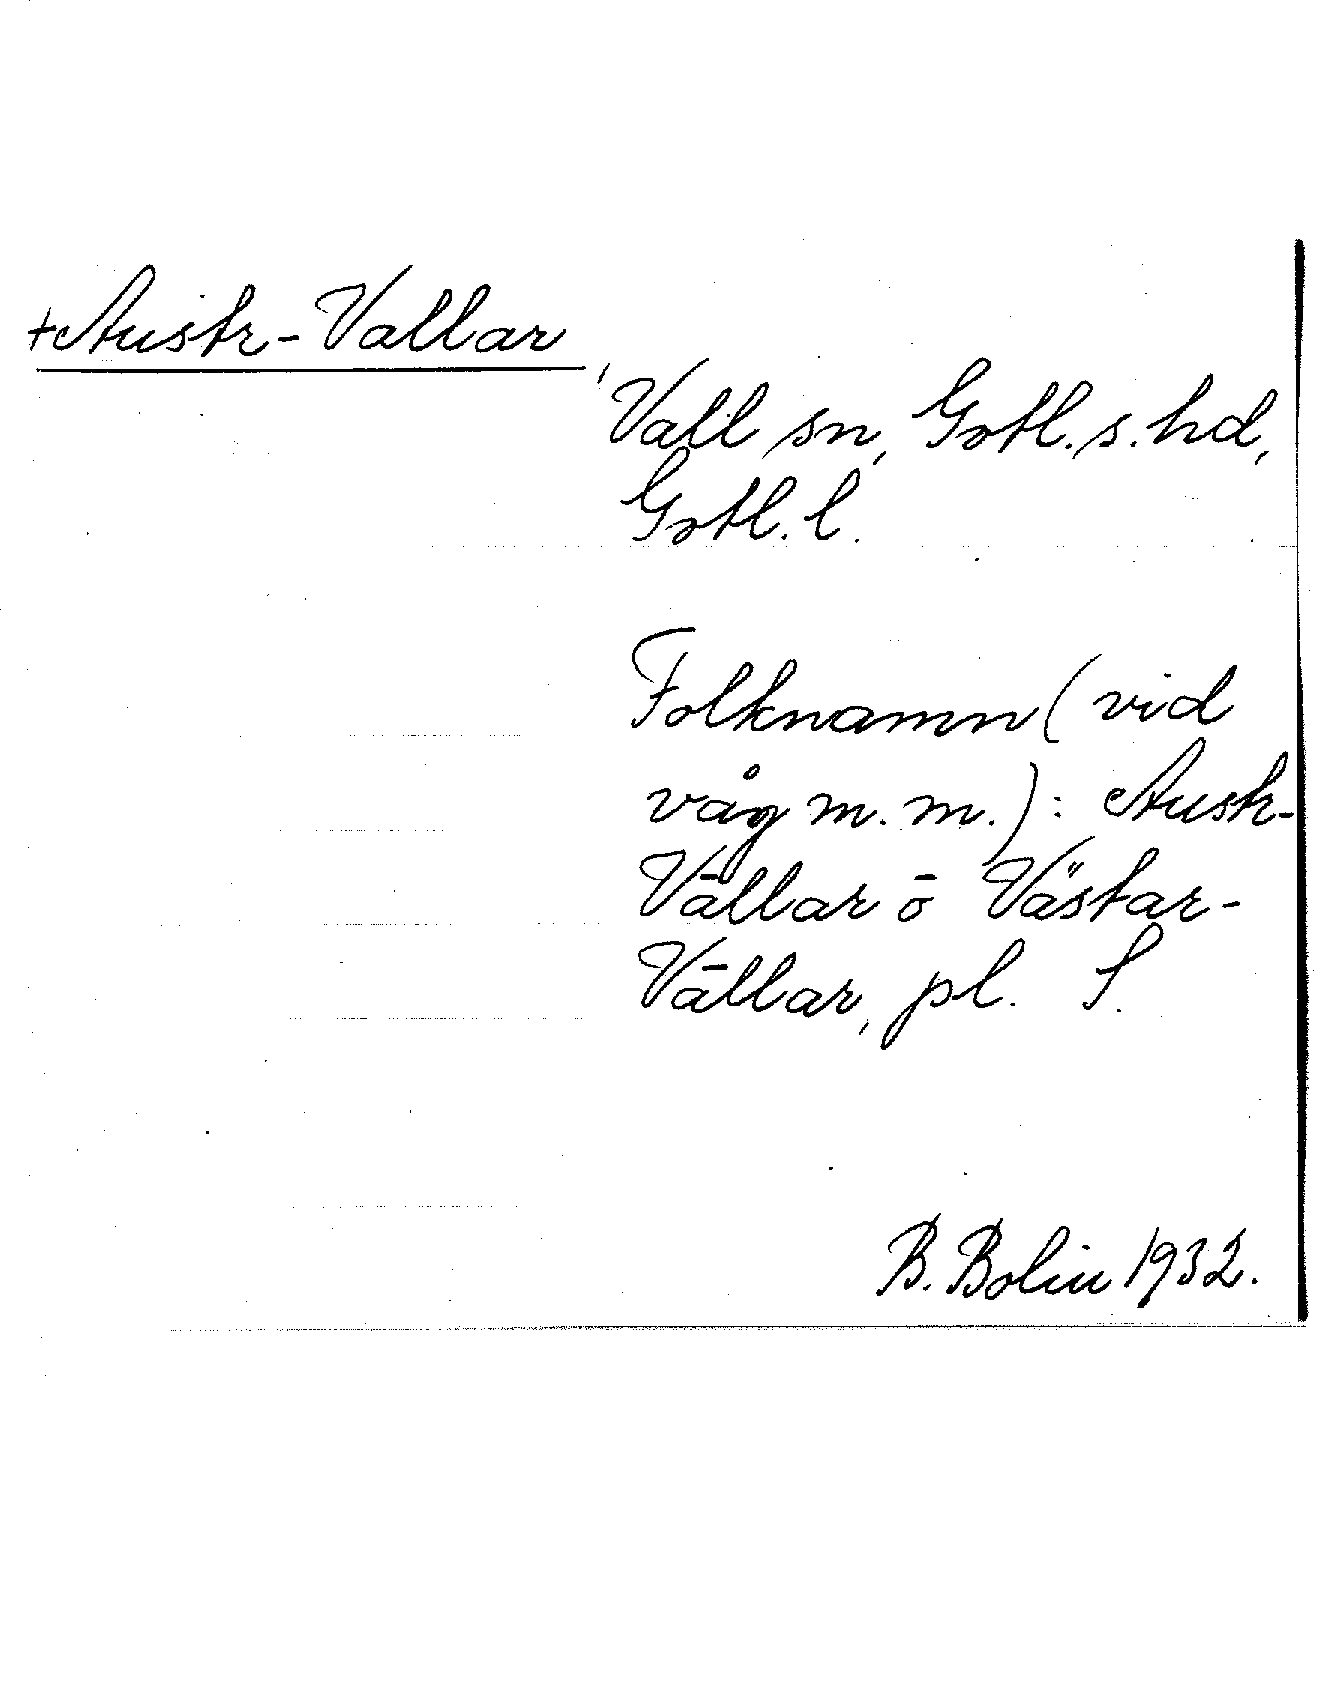 +Austr-Vallar
, Vall sn, Gotl. s. hd,
Gotl. l.
Folknamn (vid
våg m. m.): Austr-
Vāllar ō Västar-
Vāllar, pl. S.
B. Bolin 1932.